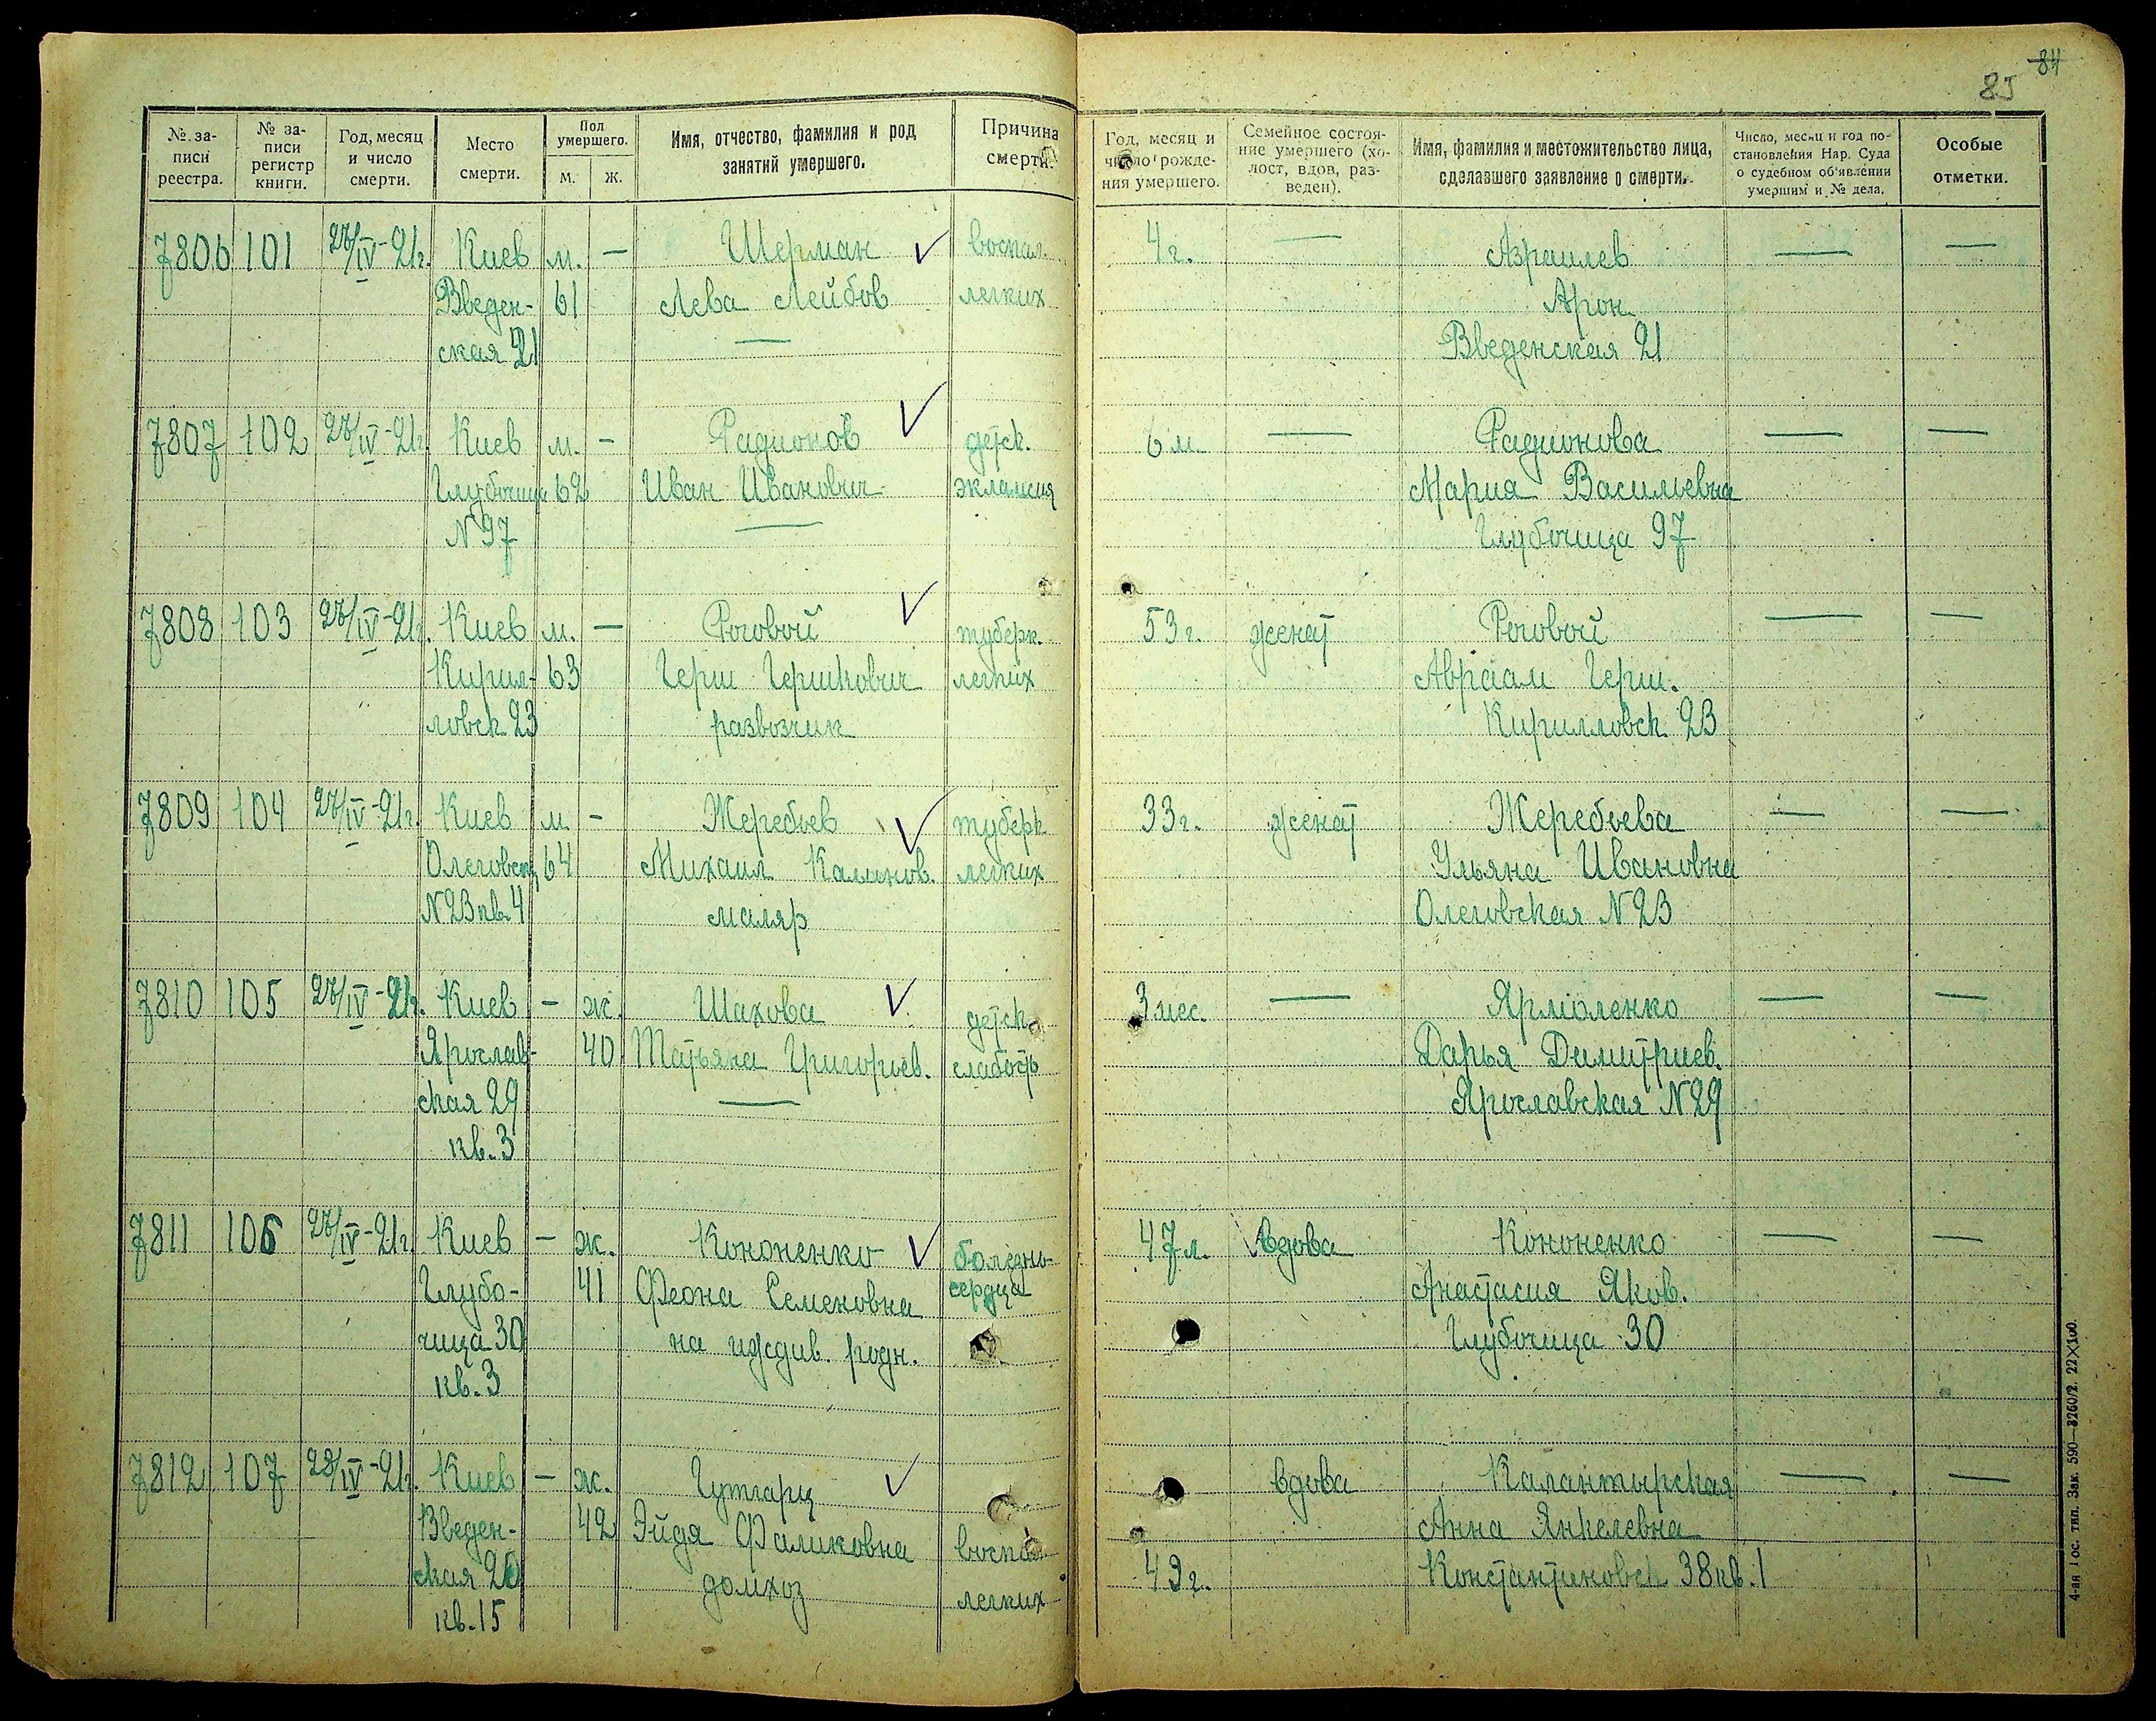 84
85
№ за-
писи
реестра.
№ за-
писи
регистр
книги.
Год, месяц
и число
смерти.
Место
смерти.
Пол
умершего.
м.
ж.
Имя, отчество, фамилия и род
занятий умершего.
Причина
смерти.
Год, месяц и
число рожде-
ния умершего.
Семейное состоя-
ние умершего (хо-
лост, вдов, раз-
веден).
Имя, фамилия и местожительство лица,
сделавшего заявление о смерти.
Число, месяц и год по-
становления Нар. Суда
о судебном об'явлении
умершим и № дела.
Особые
отметки.
7806 101 27/IV-21г. Киев м. — Шерман воспал. 4 г. — Азраилев — —
Введен- 61 Лева Лейбов легких Арон
ская 21 — Введенская 21
7807 102 27/IV-21г. Киев м. — Радионов детск. 6 м. — Радионова — —
Глубочица 62 Иван Иванович эклампсия Мария Васильевна
N 97 — Глубочица 97
7808 103 27/IV-21г. Киев м. — Роговой туберк. 53 г. женат Роговой — —
Кирил- 63 Герш Гершкович легких Авраам Герш.
ловск 23 развозчик Кирилловск. 23
7809 104 27/IV-21г. Киев м. — Жеребьев туберк. 33 г. женат Жеребьева — —
Олеговск 64 Михаил Калинов. легких Ульяна Ивановна
N 23 кв 4 маляр Олеговская N 23
7810 105 27/IV-21г. Киев — ж. Шахова детск. 3 мес. — Ярмоленко — —
Ярослав- 40 Татьяна Григорьев. слабость Дарья Димитриев.
ская 29 — Ярославская N 29
кв. 3
7811 106 27/IV-21г. Киев — ж. Кононенко 47 л. вдова Кононенко — —
Глубо- 41 Феона Семеновна сердца Анастасия Яков.
чица 30 на иждив. родн. Глубочица 30
кв. 3
7812 107 28/IV-21г. Киев — ж. Гутгарц вдова Калантырская — —
Введен- 42 Эйдя Фаликовна воспал Анна Янкелевна
ская 26 домхоз легких 49 г. Константиновск 38 кв. 1
кв. 15
4-ая Гос. тип. Зак. 590—3260/2. 22×100.